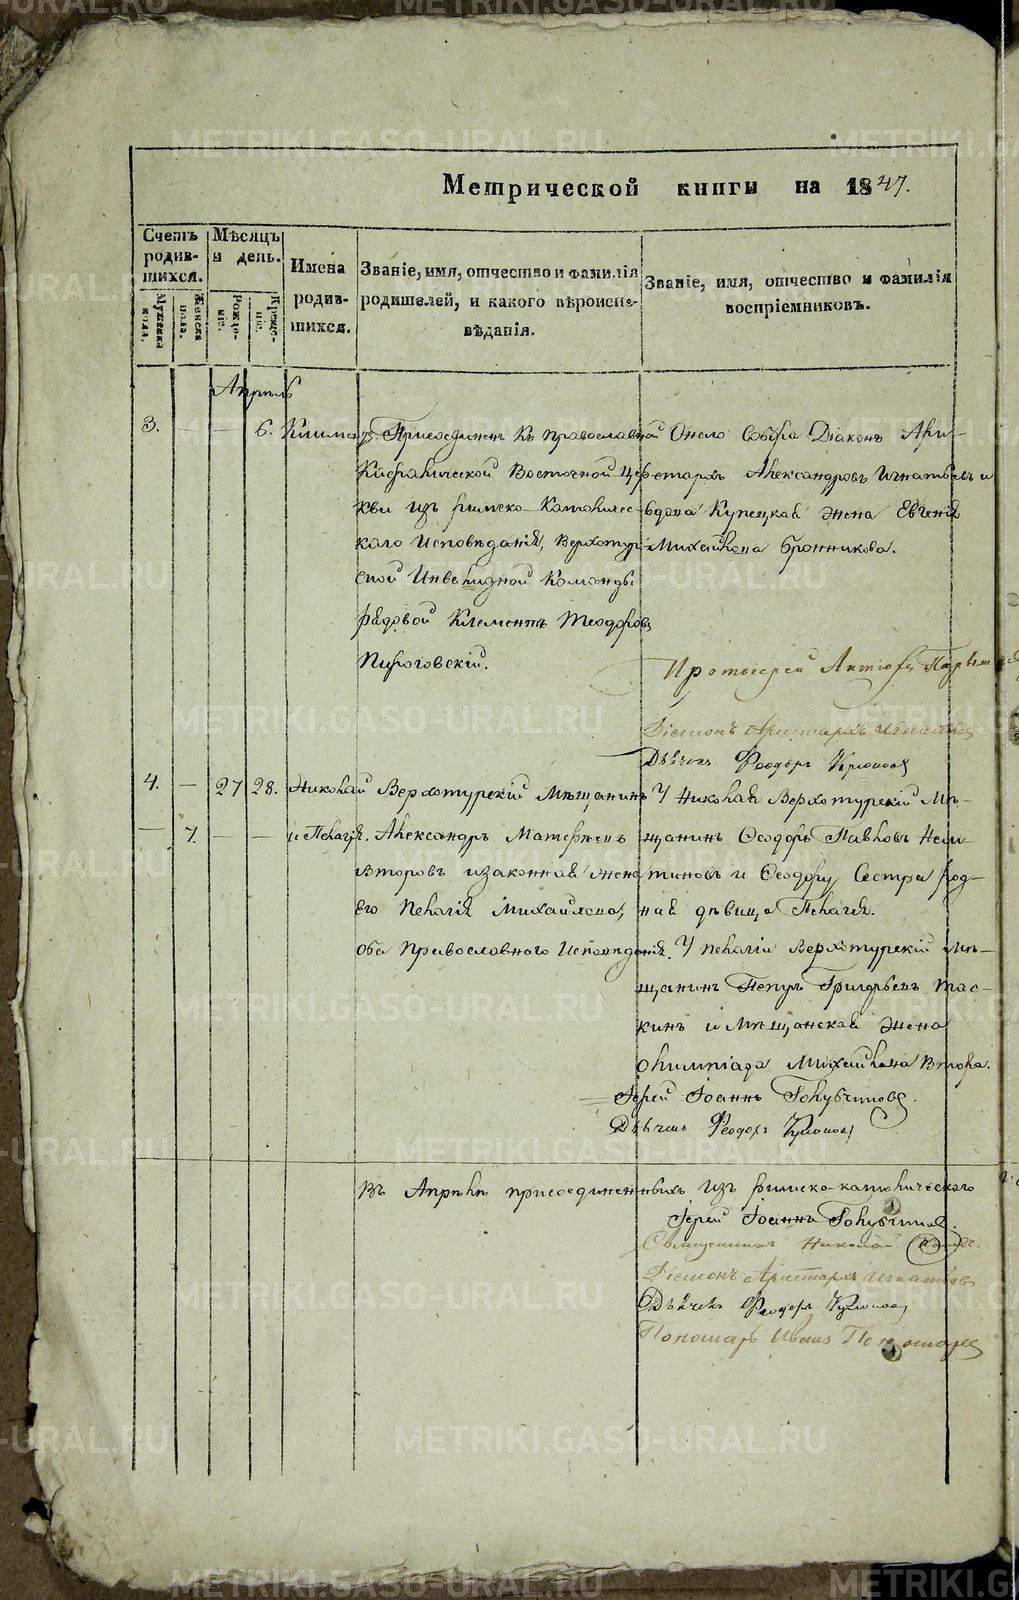 Метрической книги на 1847.
Счетъ родив-шихся.
Мужска пола.
Женска пола.
Мѣсяцъ и день.
Рожде-ніе.
Креще-ніе.
Имена родив-шихся.
Званіе, имя, отчество и фамилія родителей, и какого вѣроиспо-вѣданія.
Званіе, имя, отчество и фамилія воспріемниковъ.
Апрель
3. — — 6. Климентъ
Присоединен къ православной
Кафолической Восточной Цер
кви изъ римско-Католичес-
каго Исповѣданія, Верхотур-
ской Инвалидной Команды
рядовой Климентъ Теодоровъ
Пироговскій.
Онаго Собора Діаконъ Ари-
стархъ Александровъ Игнатьевъ и
вдова Купецкая жена Евгенія
Михайлова Бронникова.
Протоіерей
Діаконъ Аристархъ Игнатьев
Дьячекъ Ѳеодоръ
4. — 27 28. Николай
— 7. — — и Пелагія.
Верхотурскій Мѣщанинъ
Александръ Матѳѣевъ
Второвъ и законная жена
его Пелагія Михайлова,
оба Православнаго Исповѣданія.
У Николая Верхотурскій Мѣ-
щанинъ Ѳеодоръ Павловъ
и Ѳеодору Сестра род-
ная дѣвица Пелагія.
У Пелагіи Верхотурскій Мѣ-
щанинъ Петръ Григорьевъ Тас-
кинъ и Мѣщанская жена
Олимпіада Михайлова Втора.
Іерей Іоаннъ Голубчиковъ.
Дьячекъ Ѳеодоръ
Въ Апрѣлѣ присоединенныхъ изъ римско-католическаго
Іерей Іоаннъ Голубчиков.
Священникъ Николай
Діаконъ Аристархъ Игнатьев
Дьячекъ Ѳеодоръ
Пономарь Иванъ Пономарев
METRIKI.GASO-URAL.RU